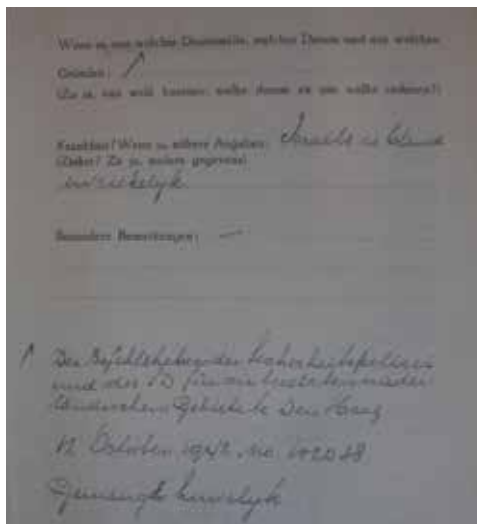 Wenn ja, von welcher Dienststelle, welchen Datum und aus welchen
Gründen:
(Zo ja, van welk kantoor, welke datum en om welke redenen?)
Krankheit? Wenn ja, nähere Angaben:
(Ziekte? Zo ja, nadere gegevens)
Besondere Bemerkungen: —
Der Befehlshaber der Sicherheitspolizei
und des SD für die besetzten nieder
ländischen Gebiete te Den Haag
12 October 1942. no.
Gemengd huwelijk